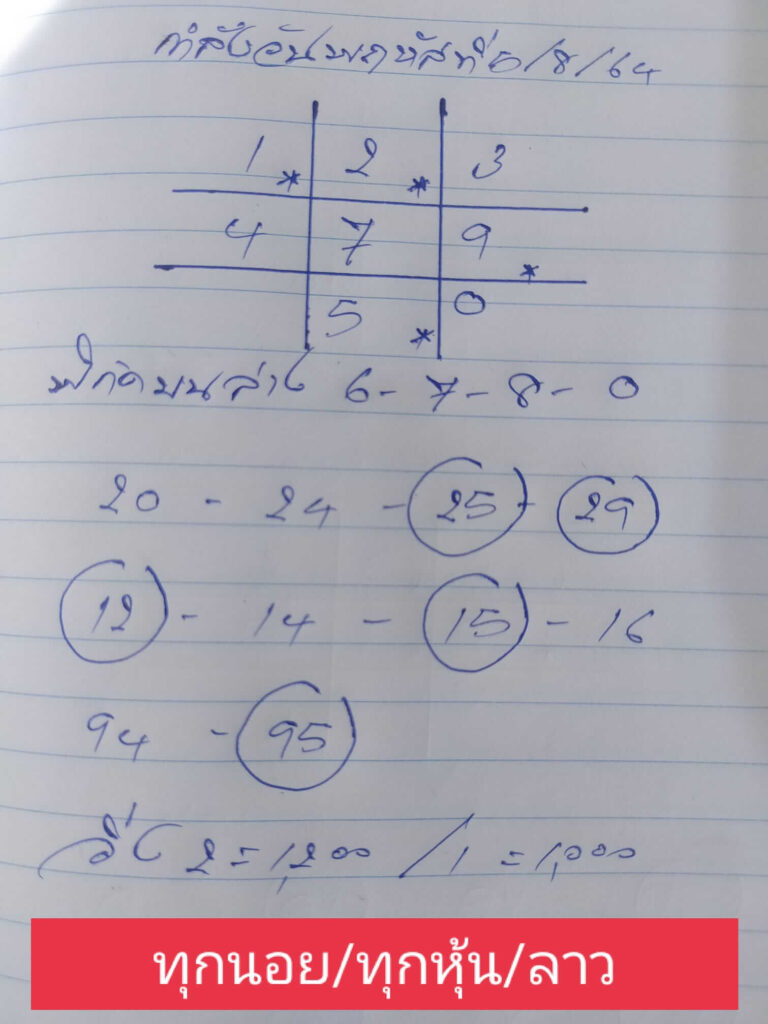 กำลังวันพฤหัสที่ 5/8/64
1* 2* 3
4 7 9*
5* 0
พิกัดบนล่าง 6-7-8-0
20 - 24 - 25 - 29
12 - 14 - 15 - 16
94 - 95
วิ่ง 2=1,200 /1=1,000
ทุกนอย/ทุกหุ้น/ลาว